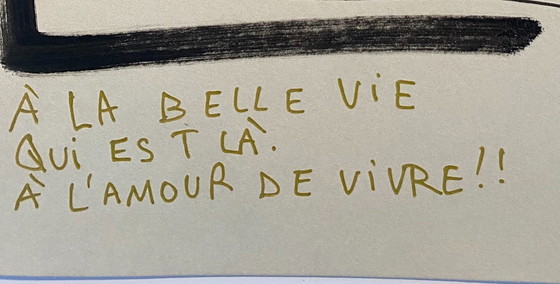 À LA BELLE ViE
QUi EST LÀ.
À L'AMOUR DE ViVRE!!